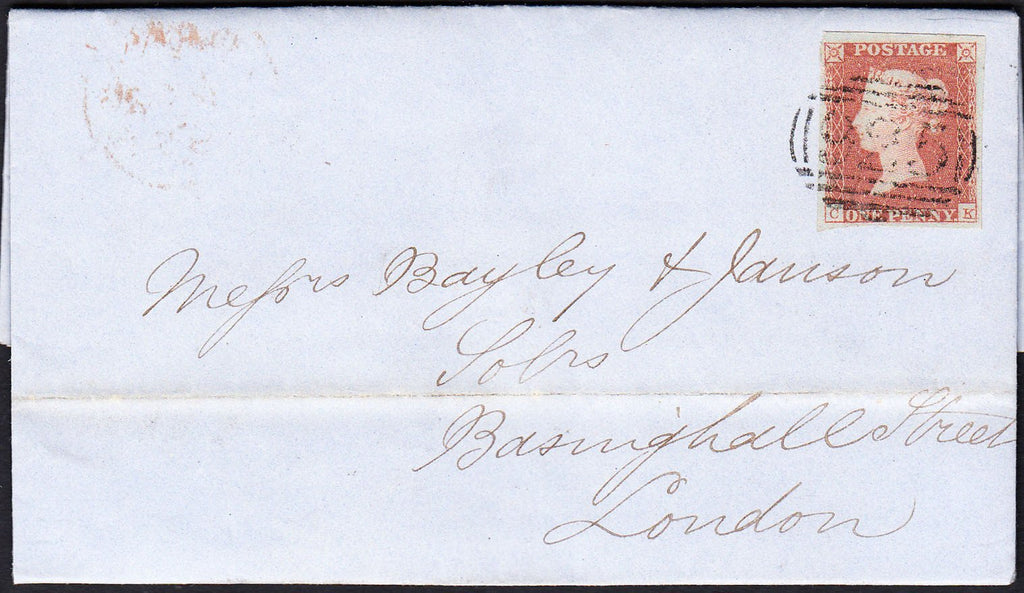 POSTAGE
C ONE PENNY. K
Messrs Bayley & Janson
Solrs
Basinghall Street
London